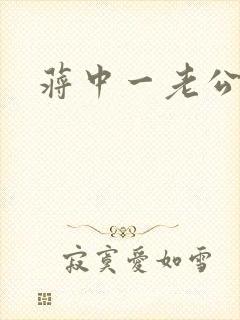 蒋中一老公
寂寞愛如雪